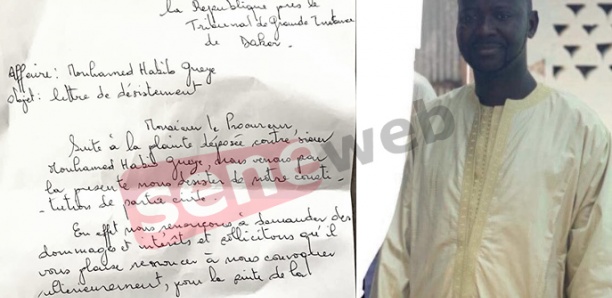 la République près le
Tribunal de Grande Instance
de Dakar.
Affaire : Mouhamed Habib Gueye
Objet : lettre de désistement
Monsieur le Procureur,
Suite à la plainte déposée contre sieur
Mouhamed Habib Gueye, nous venons par
la présente nous désister de notre consti-
-tution de partie civile.
En effet nous renonçons à demander des
dommages et intérêts et sollicitons qu'il
vous plaise renoncer à nous convoquer
ultérieurement, pour la suite de la
seneweb